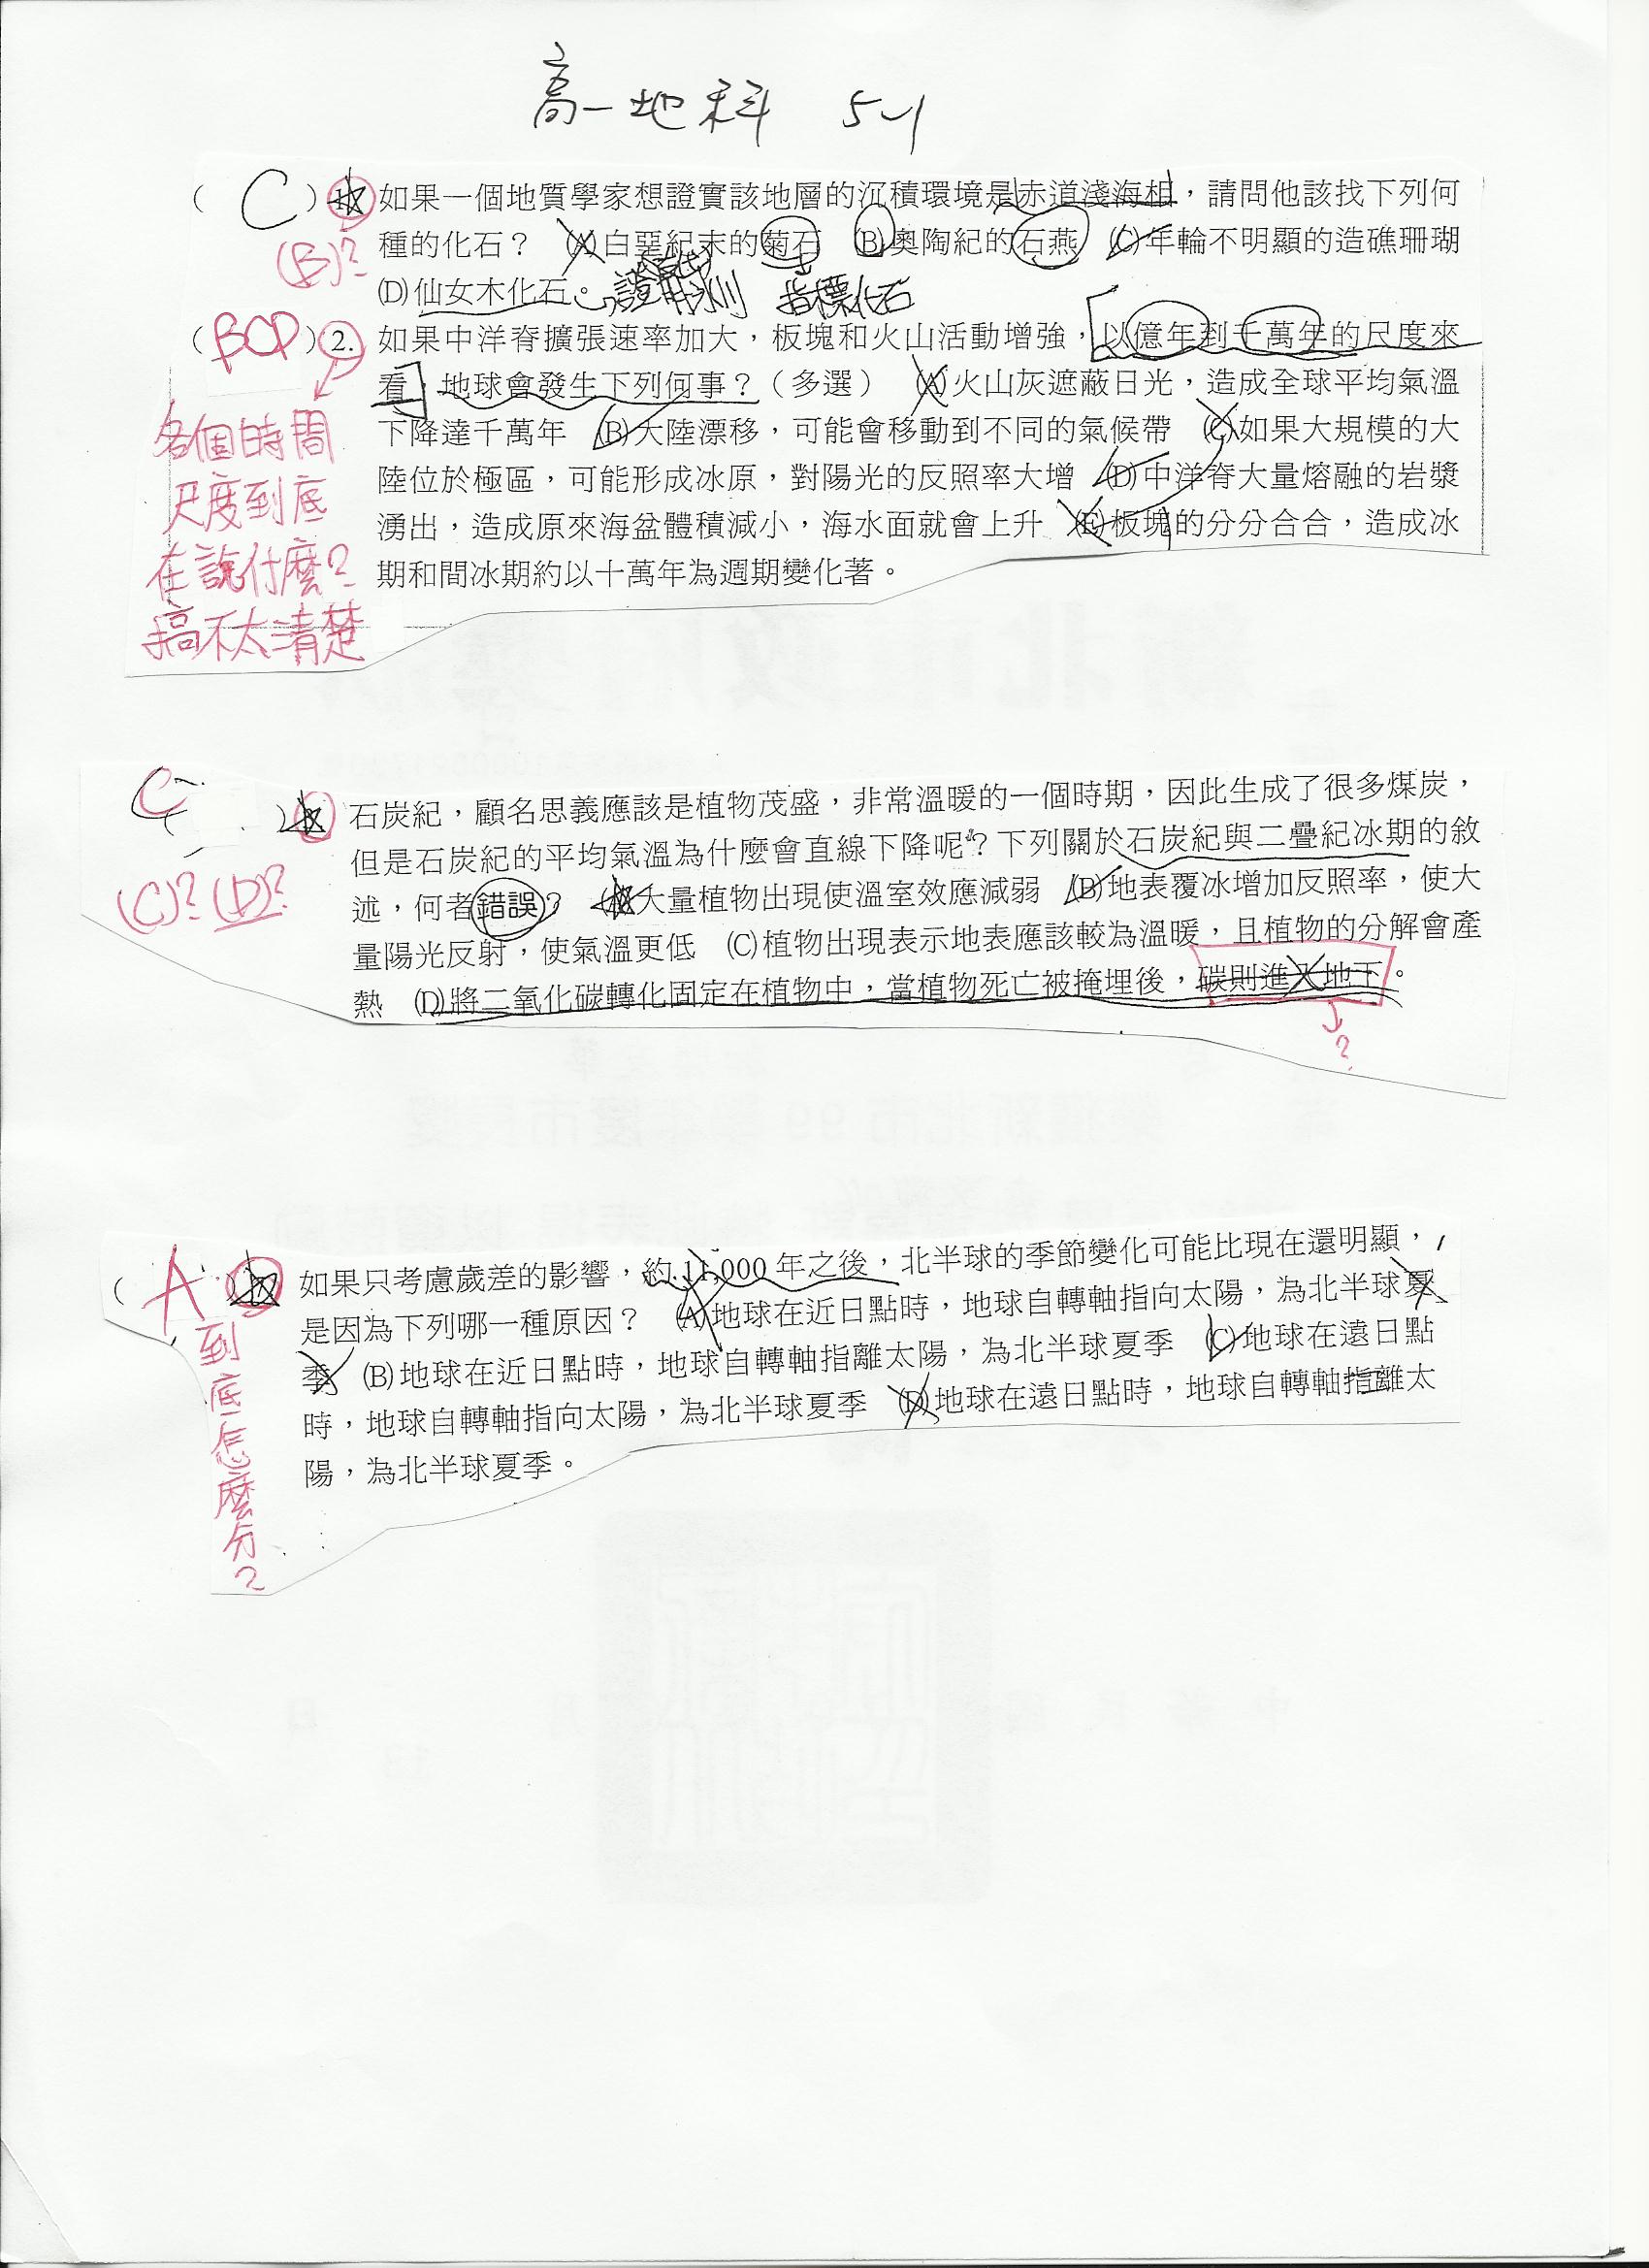 高一地科 5-1
( C ) 如果一個地質學家想證實該地層的沉積環境是赤道淺海相，請問他該找下列何
(B)? 種的化石？ (A)白堊紀末的菊石 (B)奧陶紀的石燕 (C)年輪不明顯的造礁珊瑚
(D)仙女木化石。 指標化石
( BCD ) 2. 如果中洋脊擴張速率加大，板塊和火山活動增強，以億年到千萬年的尺度來
看，地球會發生下列何事？（多選） (A)火山灰遮蔽日光，造成全球平均氣溫
下降達千萬年 (B)大陸漂移，可能會移動到不同的氣候帶 (C)如果大規模的大
陸位於極區，可能形成冰原，對陽光的反照率大增 (D)中洋脊大量熔融的岩漿
湧出，造成原來海盆體積減小，海水面就會上升 (E)板塊的分分合合，造成冰
期和間冰期約以十萬年為週期變化著。
各個時間
尺度到底
在說什麼?
搞不太清楚
C ) 石炭紀，顧名思義應該是植物茂盛，非常溫暖的一個時期，因此生成了很多煤炭，
但是石炭紀的平均氣溫為什麼會直線下降呢？下列關於石炭紀與二疊紀冰期的敘
(C)? (D)? 述，何者錯誤？ 大量植物出現使溫室效應減弱 (B)地表覆冰增加反照率，使大
量陽光反射，使氣溫更低 (C)植物出現表示地表應該較為溫暖，且植物的分解會產
熱 (D)將二氧化碳轉化固定在植物中，當植物死亡被掩埋後，碳則進入地下。
?
( A ) 如果只考慮歲差的影響，約 11,000 年之後，北半球的季節變化可能比現在還明顯，
是因為下列哪一種原因？ (A)地球在近日點時，地球自轉軸指向太陽，為北半球夏
季 (B)地球在近日點時，地球自轉軸指離太陽，為北半球夏季 (C)地球在遠日點
時，地球自轉軸指向太陽，為北半球夏季 (D)地球在遠日點時，地球自轉軸指離太
陽，為北半球夏季。
到底怎麼分?